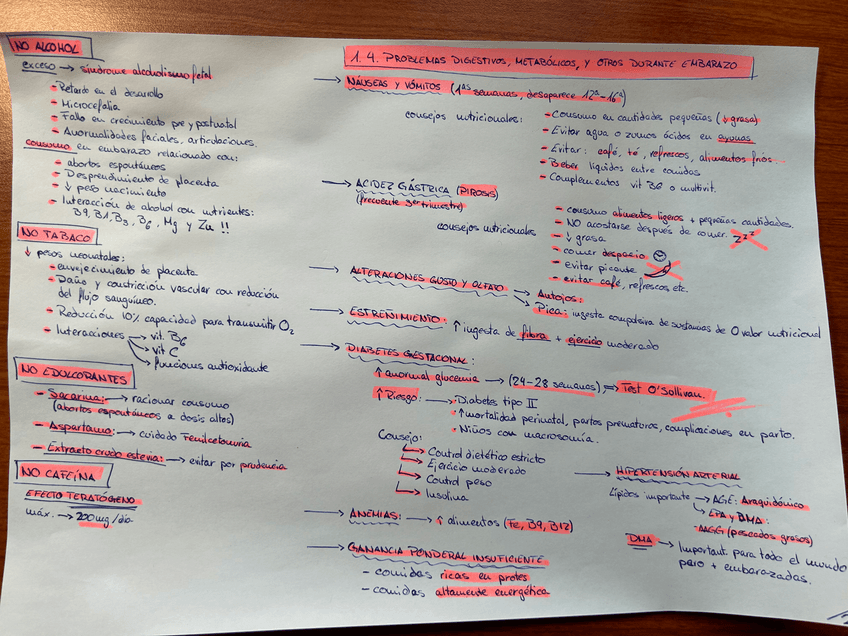 NO ALCOHOL
exceso → síndrome alcoholismo fetal
- Retardo en el desarrollo
- Microcefalia
- Fallo en crecimiento pre y postnatal
- Anormalidades faciales, articulaciones.
consumo en embarazo relacionado con:
- abortos espontáneos
- Desprendimiento de placenta
- ↓ peso nacimiento
- Interacción de alcohol con nutrientes:
B9, B1, B3, B6, Mg y Zn !!
NO TABACO
↓ pesos neonatales:
- envejecimiento de placenta
- Daño y constricción vascular con reducción
del flujo sanguíneo.
- Reducción 10% capacidad para transmitir O2
- Interacciones → vit. B6
→ vit C
→ funciones antioxidante
NO EDULCORANTES
- Sacarina: → racionar consumo
(abortos espontáneos a dosis altas)
- Aspartamo: → cuidado Fenilcetonuria
- Extracto crudo estevia: → evitar por prudencia
NO CAFEÍNA
EFECTO TERATÓGENO
máx. → 200mg/día.
1.4. PROBLEMAS DIGESTIVOS, METABÓLICOS, Y OTROS DURANTE EMBARAZO
→ NÁUSEAS Y VÓMITOS (1as semanas, desaparece 12ª-16ª)
consejos nutricionales:
- Consumo en cantidades pequeñas (↓ grasa)
- Evitar agua o zumos ácidos en ayunas
- Evitar: café, té, refrescos, alimentos fríos...
- Beber líquidos entre comidas
- Complementos vit B6 o multivit.
→ ACIDEZ GÁSTRICA (PIROSIS)
(frecuente 3er trimestre)
consejos nutricionales
- consumo alimentos ligeros + pequeñas cantidades.
- NO acostarse después de comer. zzz
- ↓ grasa
- comer despacio
- evitar picante
- evitar café, refrescos etc.
→ ALTERACIONES GUSTO Y OLFATO → Antojos:
→ Pica: ingesta compulsiva de sustancias de 0 valor nutricional
→ ESTREÑIMIENTO: ↑ ingesta de fibra + ejercicio moderado
→ DIABETES GESTACIONAL:
↑ anormal glucemia → (24-28 semanas) ⇒ Test O'Sullivan.
↑ Riesgo: → · Diabetes tipo II
· ↑ mortalidad perinatal, partos prematuros, complicaciones en parto.
· Niños con macrosomía.
Consejo:
→ Control dietético estricto
→ Ejercicio moderado
→ Control peso
→ Insulina
→ ANEMIAS: → ↑ alimentos (Fe, B9, B12)
→ GANANCIA PONDERAL INSUFICIENTE
- comidas ricas en protes
- comidas altamente energética
→ HIPERTENSIÓN ARTERIAL
Lípidos importante → AGE: Araquidónico
→ EPA y DHA:
AAGG (pescados grasos)
DHA → Important para todo el mundo
pero + embarazadas.